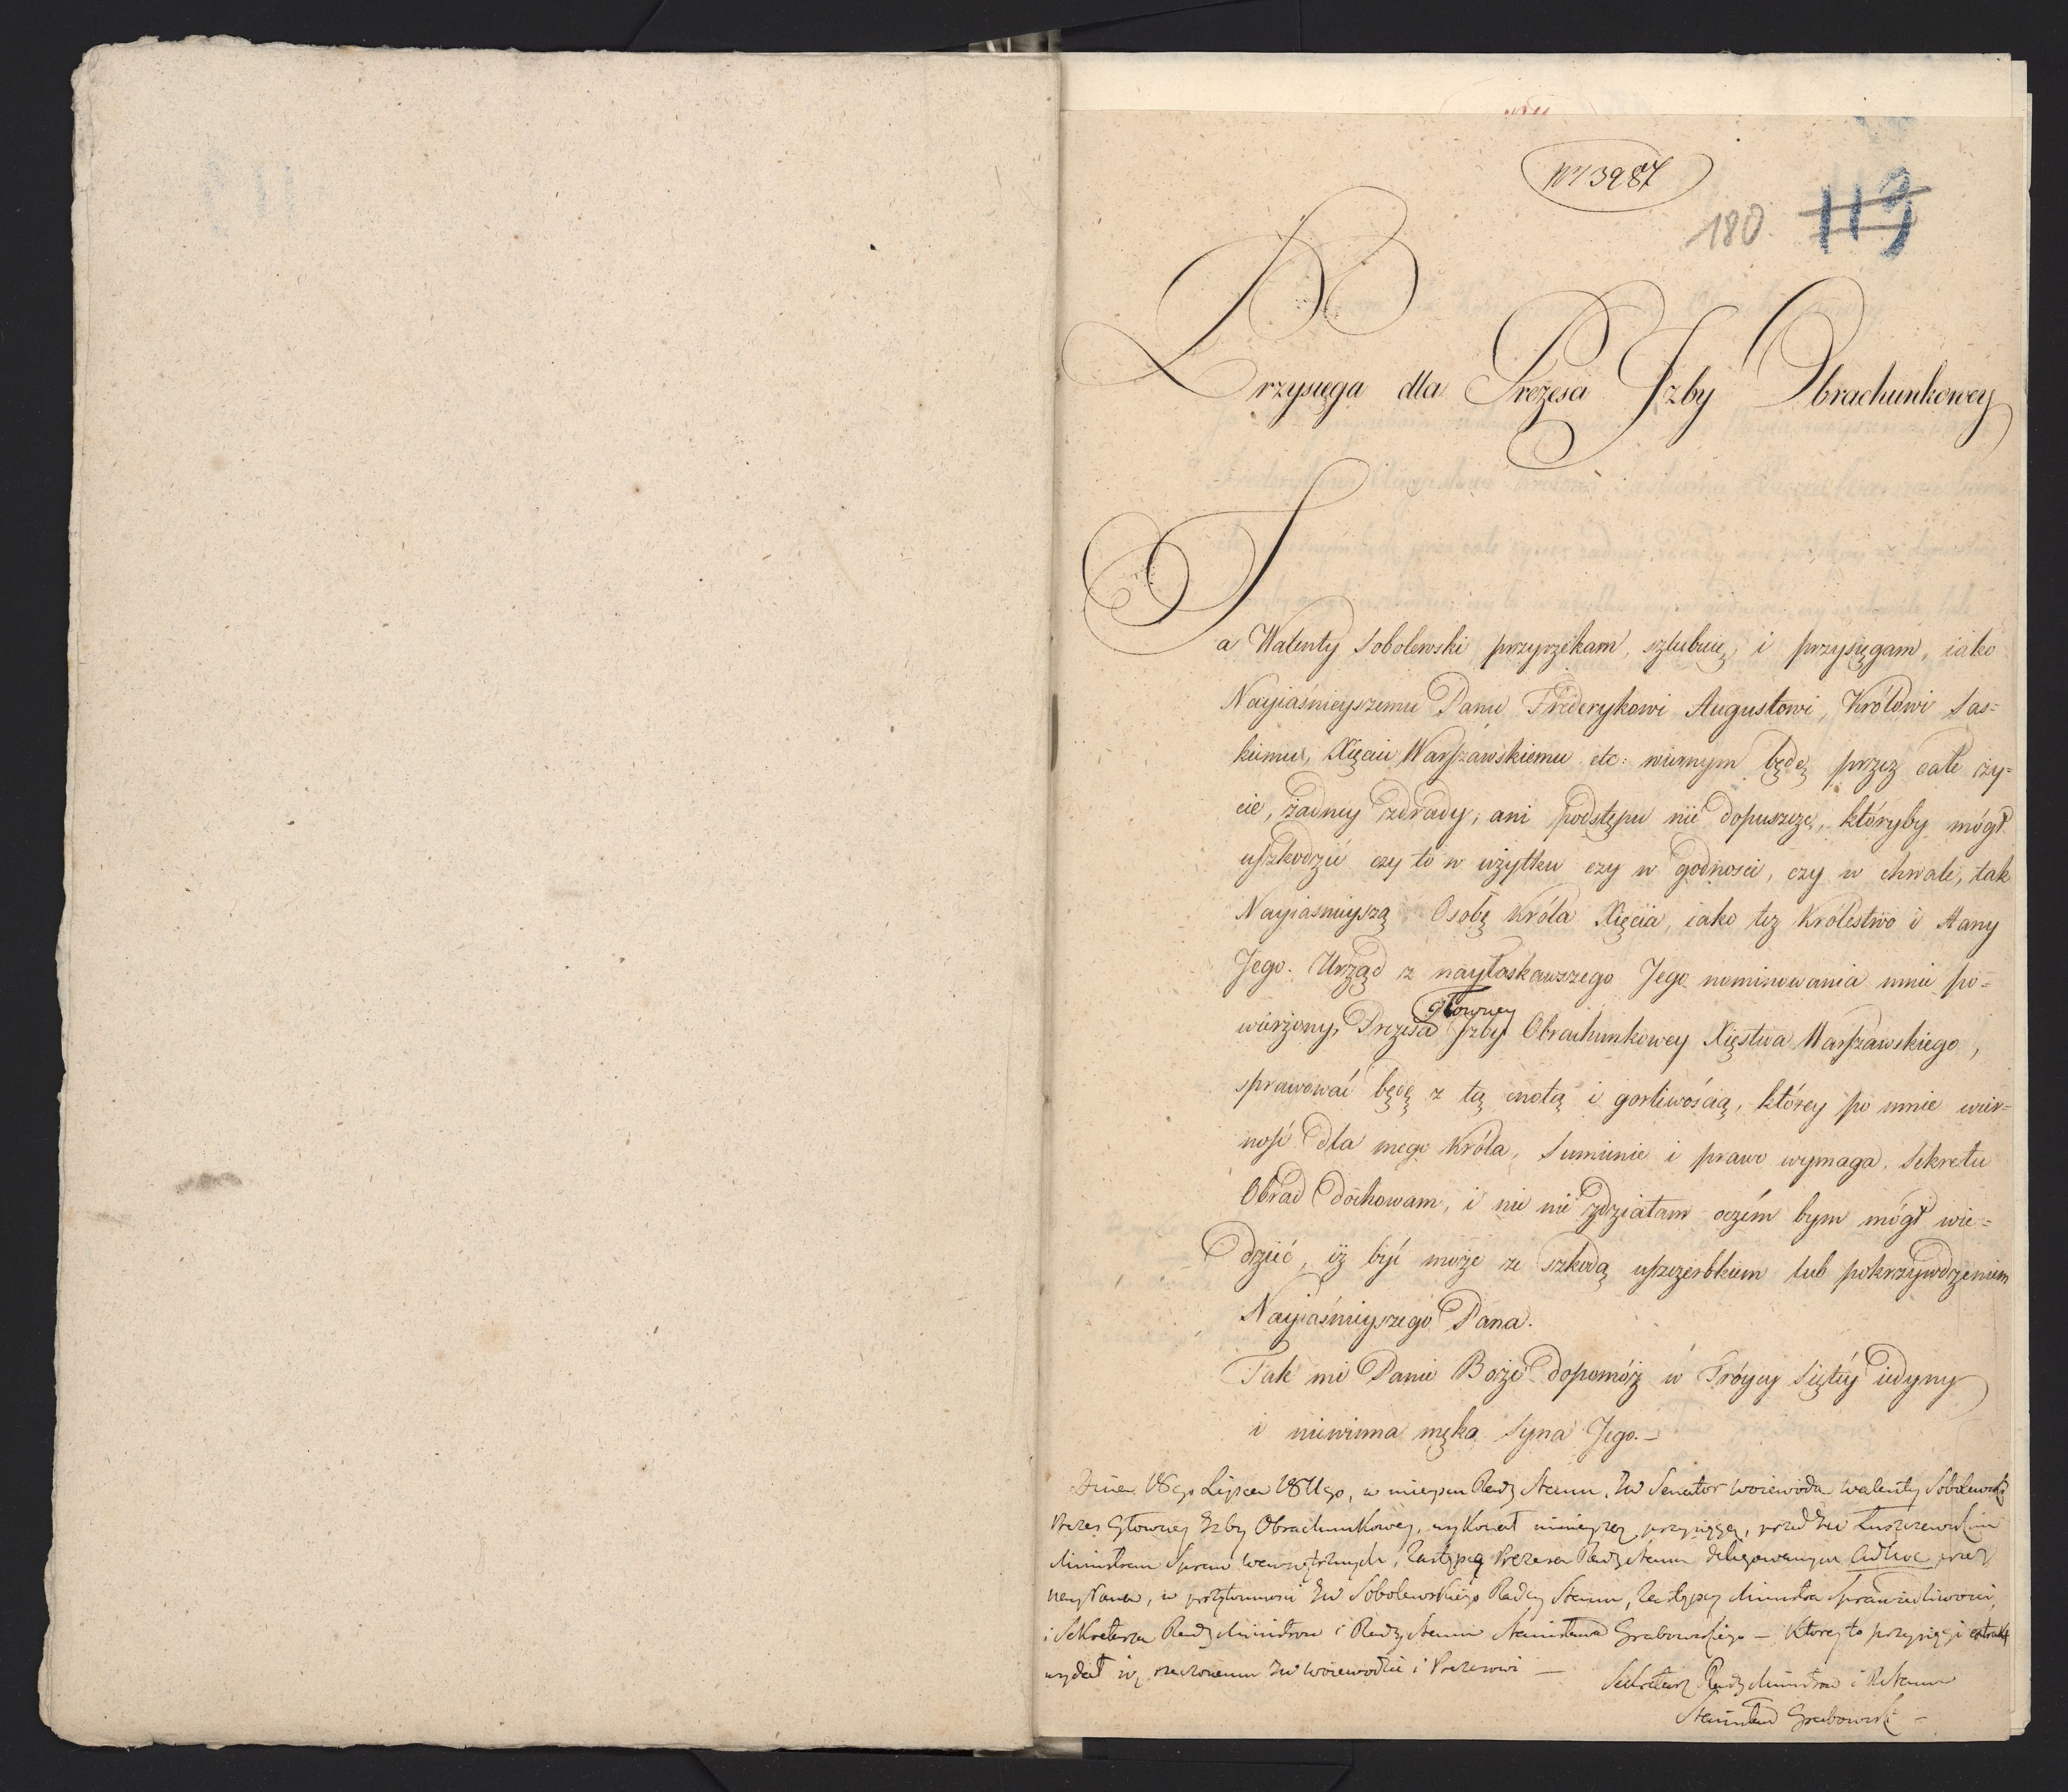 Nr 3987
180. 119
Przysięga dla Prezesa Izby Obrachunkowey
Ja Walenty Sobolewski przyrzekam, szlubuię i przysięgam, iako
Nayiaśnieyszemu Panu Fréderykowi Augustowi, Królowi Sas=
kiemu, Xięciu Warszawskiemu etc: wiernym będę przez całe ży=
cie, żadney zdrady, ani podstępu nie dopuszczę, któryby mógł
uszkodzić czy to w użytku czy w godności, czy w chwale, tak
Nayiaśnieyszą Osobę Króla Xięcia, iako też Królestwo i Stany
Jego. Urząd z nayłaskawszego Jego nominowania mnie po=
wierzony, Prezesa Główney Izby Obrachunkowey Xięstwa Warszawskiego,
sprawować będę z tą cnotą i gorliwością, którey po mnie wier=
ność dla mego Króla, Sumienie i prawo wymaga. Sekretu
Obrad dochowam, i nic nie zdziałam oczém bym mógł wie=
dzieć, iż być może ze szkodą uszczerbkiem lub pokrzywdzeniem
Nayiaśnieyszego Pana.
Tak mi Panie Boże dopomóż w Tróycy Siętéy iedyny
i niewinna męka Syna Jego.–
Dnia 18go Lipca 1811go, w mieyscu Rady Stanu, JW Senator Woiewoda Walenty Sobolewski
Prezes Głowney Izby Obrachunkowey, wykonał ninieyszą przysięgę, przed JW Łuszczewskim
Ministrem Spraw Wewnętrznych, Zastępcą Prezesa Rady Stanu delegowanym adhoc przez
Nay: Pana, w przytomności JW Sobolewskiego Radcy Stanu, Zastępcy Ministra Sprawiedliwości,
i Sekretarza Rady Ministrow i Rady Stanu Stanisława Grabowskiego – Ktorey to przysięgi extrakt
wydał się rzeczonemu JW Woiewodzie i Prezesowi –
Sekretarz Rady Ministrow i R Stanu
Stanisław Grabowski –